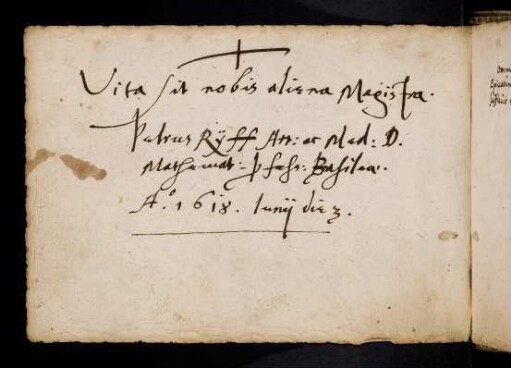 Vita sit nobis aliena Magistra.
Petrus Ryff Art: et Med: D.
Mathemat: Profess: Basileæ.
A.º 1618. Iunij die 3.